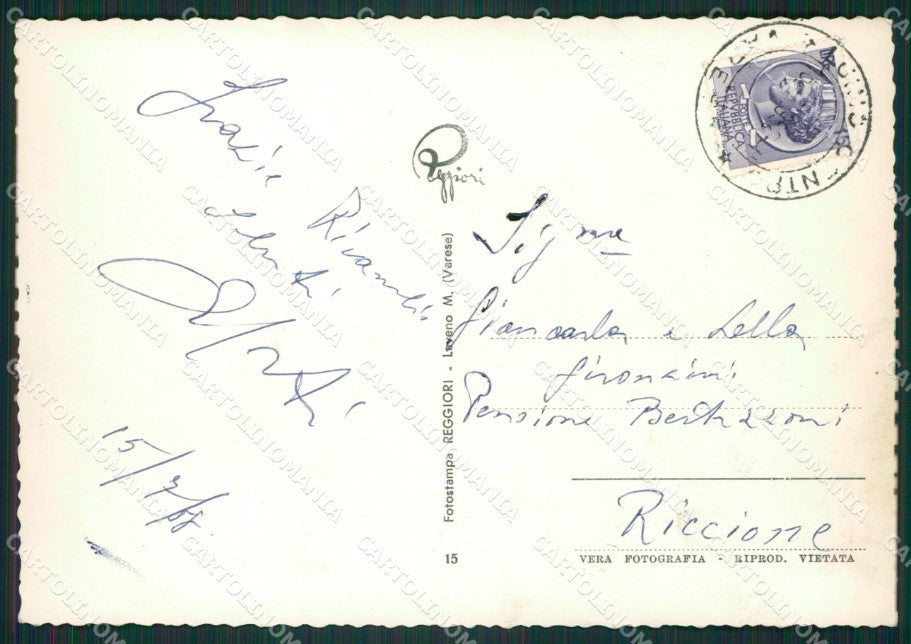 Grazie
Ricambio
saluti
15/7/
Reggiori
Fotostampa REGGIORI - Laveno M. (Varese)
15
Sig.ne
Giancarla e Lella
Gironzini
Pensione Bertazzoni
Riccione
VERA FOTOGRAFIA - RIPROD. VIETATA
REPVBBLICA ITALIANA
CARTOLINOMANIA